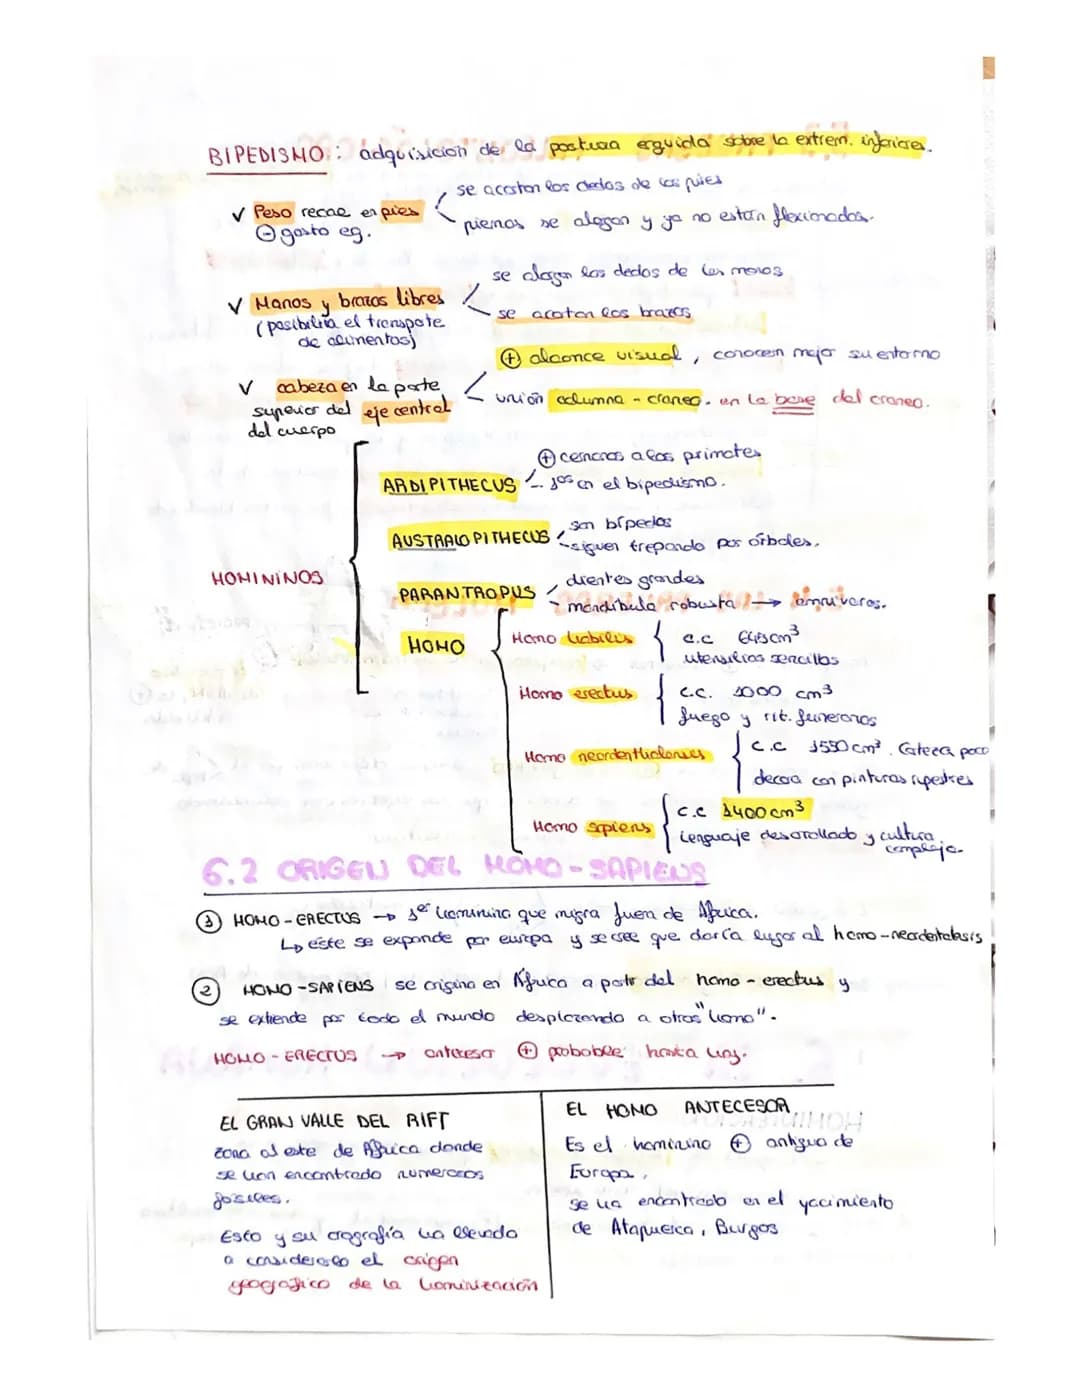 BIPEDISMO: adquisición de la postura erguida sobre la extrem. inferiores.
✓ Peso recae en pies
⊖ gasto eg.
se acortan los dedos de los pies
piernas se alargan y ya no están flexionadas.
✓ Manos y brazos libres
(posibilita el transporte
de alimentos)
se alargan los dedos de las manos
se acortan los brazos
✓ cabeza en la parte
superior del eje central
del cuerpo
⊕ alcance visual, conocen mejor su entorno
unión columna - craneo. en la base del craneo.
HOMININOS
ARDIPITHECUS
⊕ cercanos a los primates
1os en el bipedismo.
AUSTRALOPITHECUS
son bípedos
siguen trepando por árboles.
PARANTROPUS
dientes grandes
mandíbula robusta →
HOMO
Homo habilis
c.c 645cm³
utensilios sencillos
Homo erectus
c.c. 1000 cm³
fuego y rit. funerarios
Homo neardenthalensis
c.c 1550cm³. Cabeza poco
decora con pinturas rupestres
Homo sapiens
c.c 1400cm³
lenguaje desarollado y cultura
compleja.
6.2 ORIGEN DEL HOMO-SAPIENS
① HOMO-ERECTUS → 1er hominino que migra fuera de África.
↳ este se expande por europa y se cree que daría lugar al homo-neardentalesis
② HOMO-SAPIENS se origina en África a partir del homo-erectus y
se extiende por todo el mundo desplazando a otros "homo".
HOMO-ERECTUS → antecesor ⊕ probable hasta hoy.
EL GRAN VALLE DEL RIFT
zona al este de África donde
se han encontrado numerosos
fósiles.
Esto y su orografía ha llevado
a considerarlo el origen
geográfico de la hominización
EL HOMO ANTECESOR
Es el hominino ⊕ antiguo de
Europa,
se ha encontrado en el yacimiento
de Atapuerca, Burgos